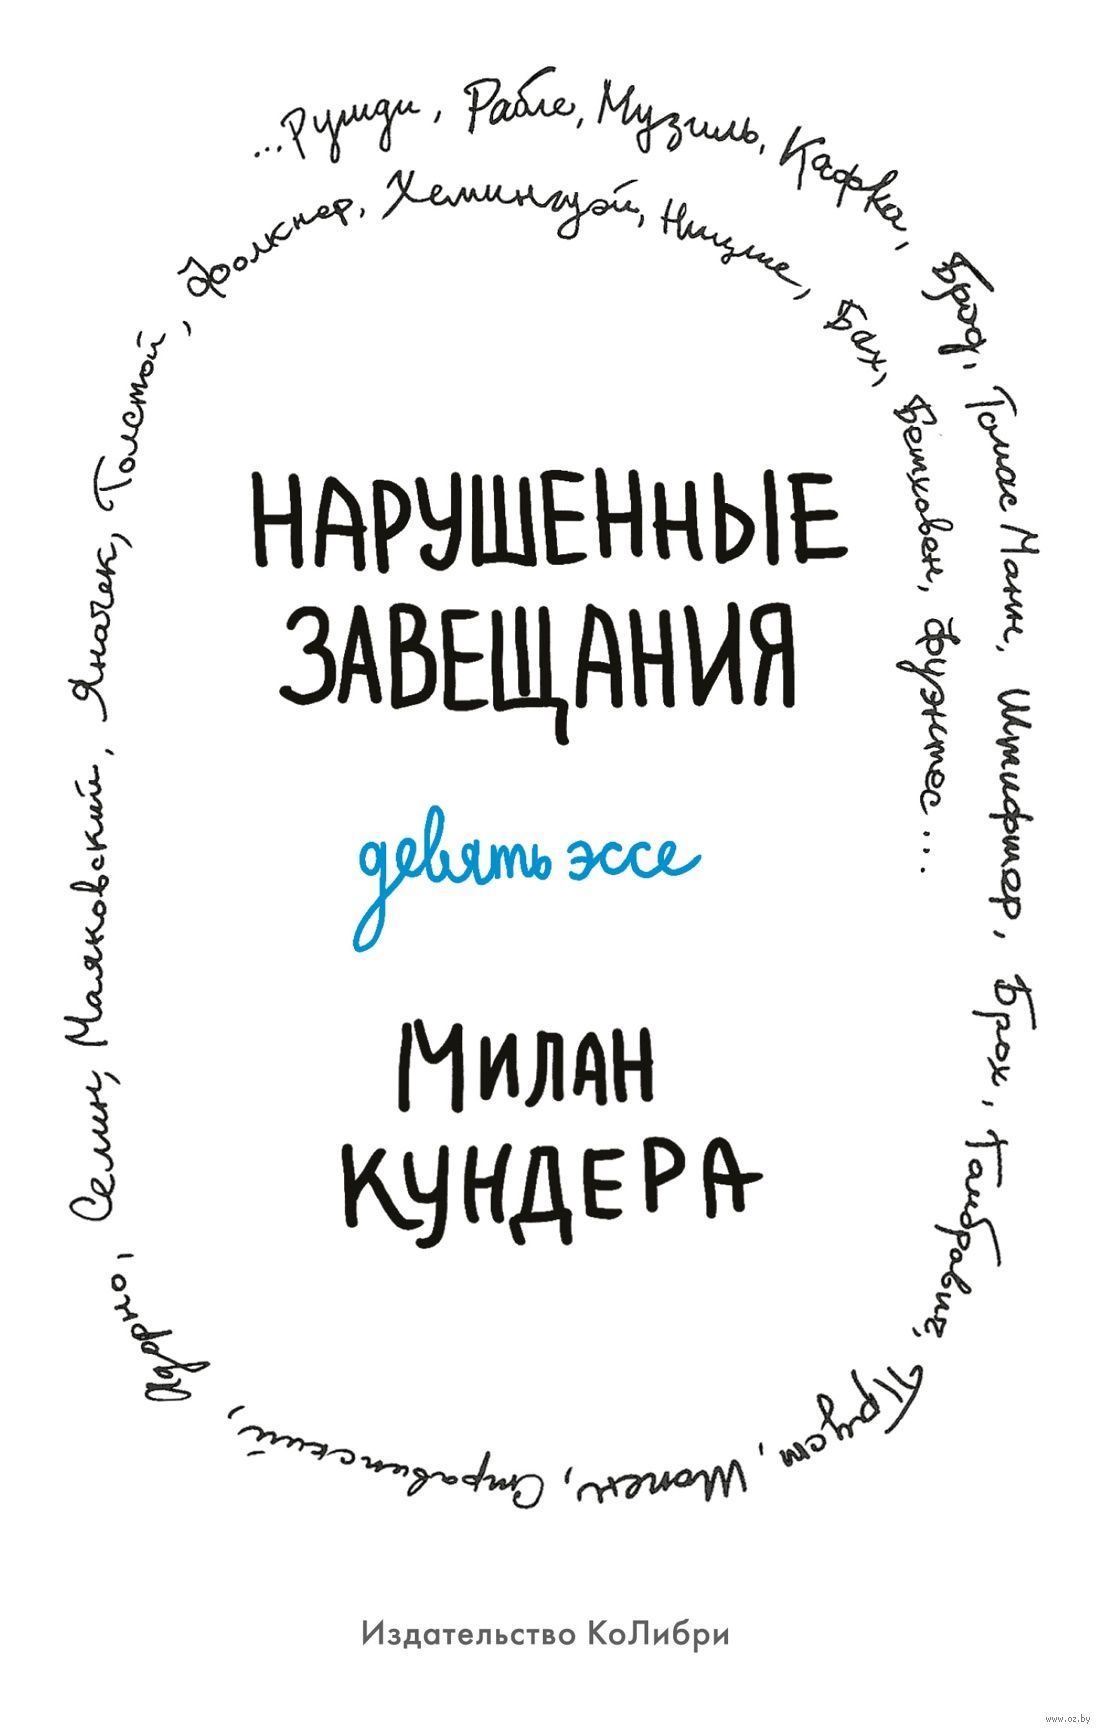 ...Рушди, Рабле, Музиль, Кафка, Брод, Томас Манн, Штифтер, Брох, Гомбрович, Пруст, Шопен, Стравинский, Адорно, Селин, Маяковский, Яначек, Толстой, Фолкнер, Хемингуэй, Ницше, Бах, Бетховен, Фуэнтес...
НАРУШЕННЫЕ
ЗАВЕЩАНИЯ
девять эссе
МИЛАН
КУНДЕРА
Издательство КоЛибри
www.oz.by